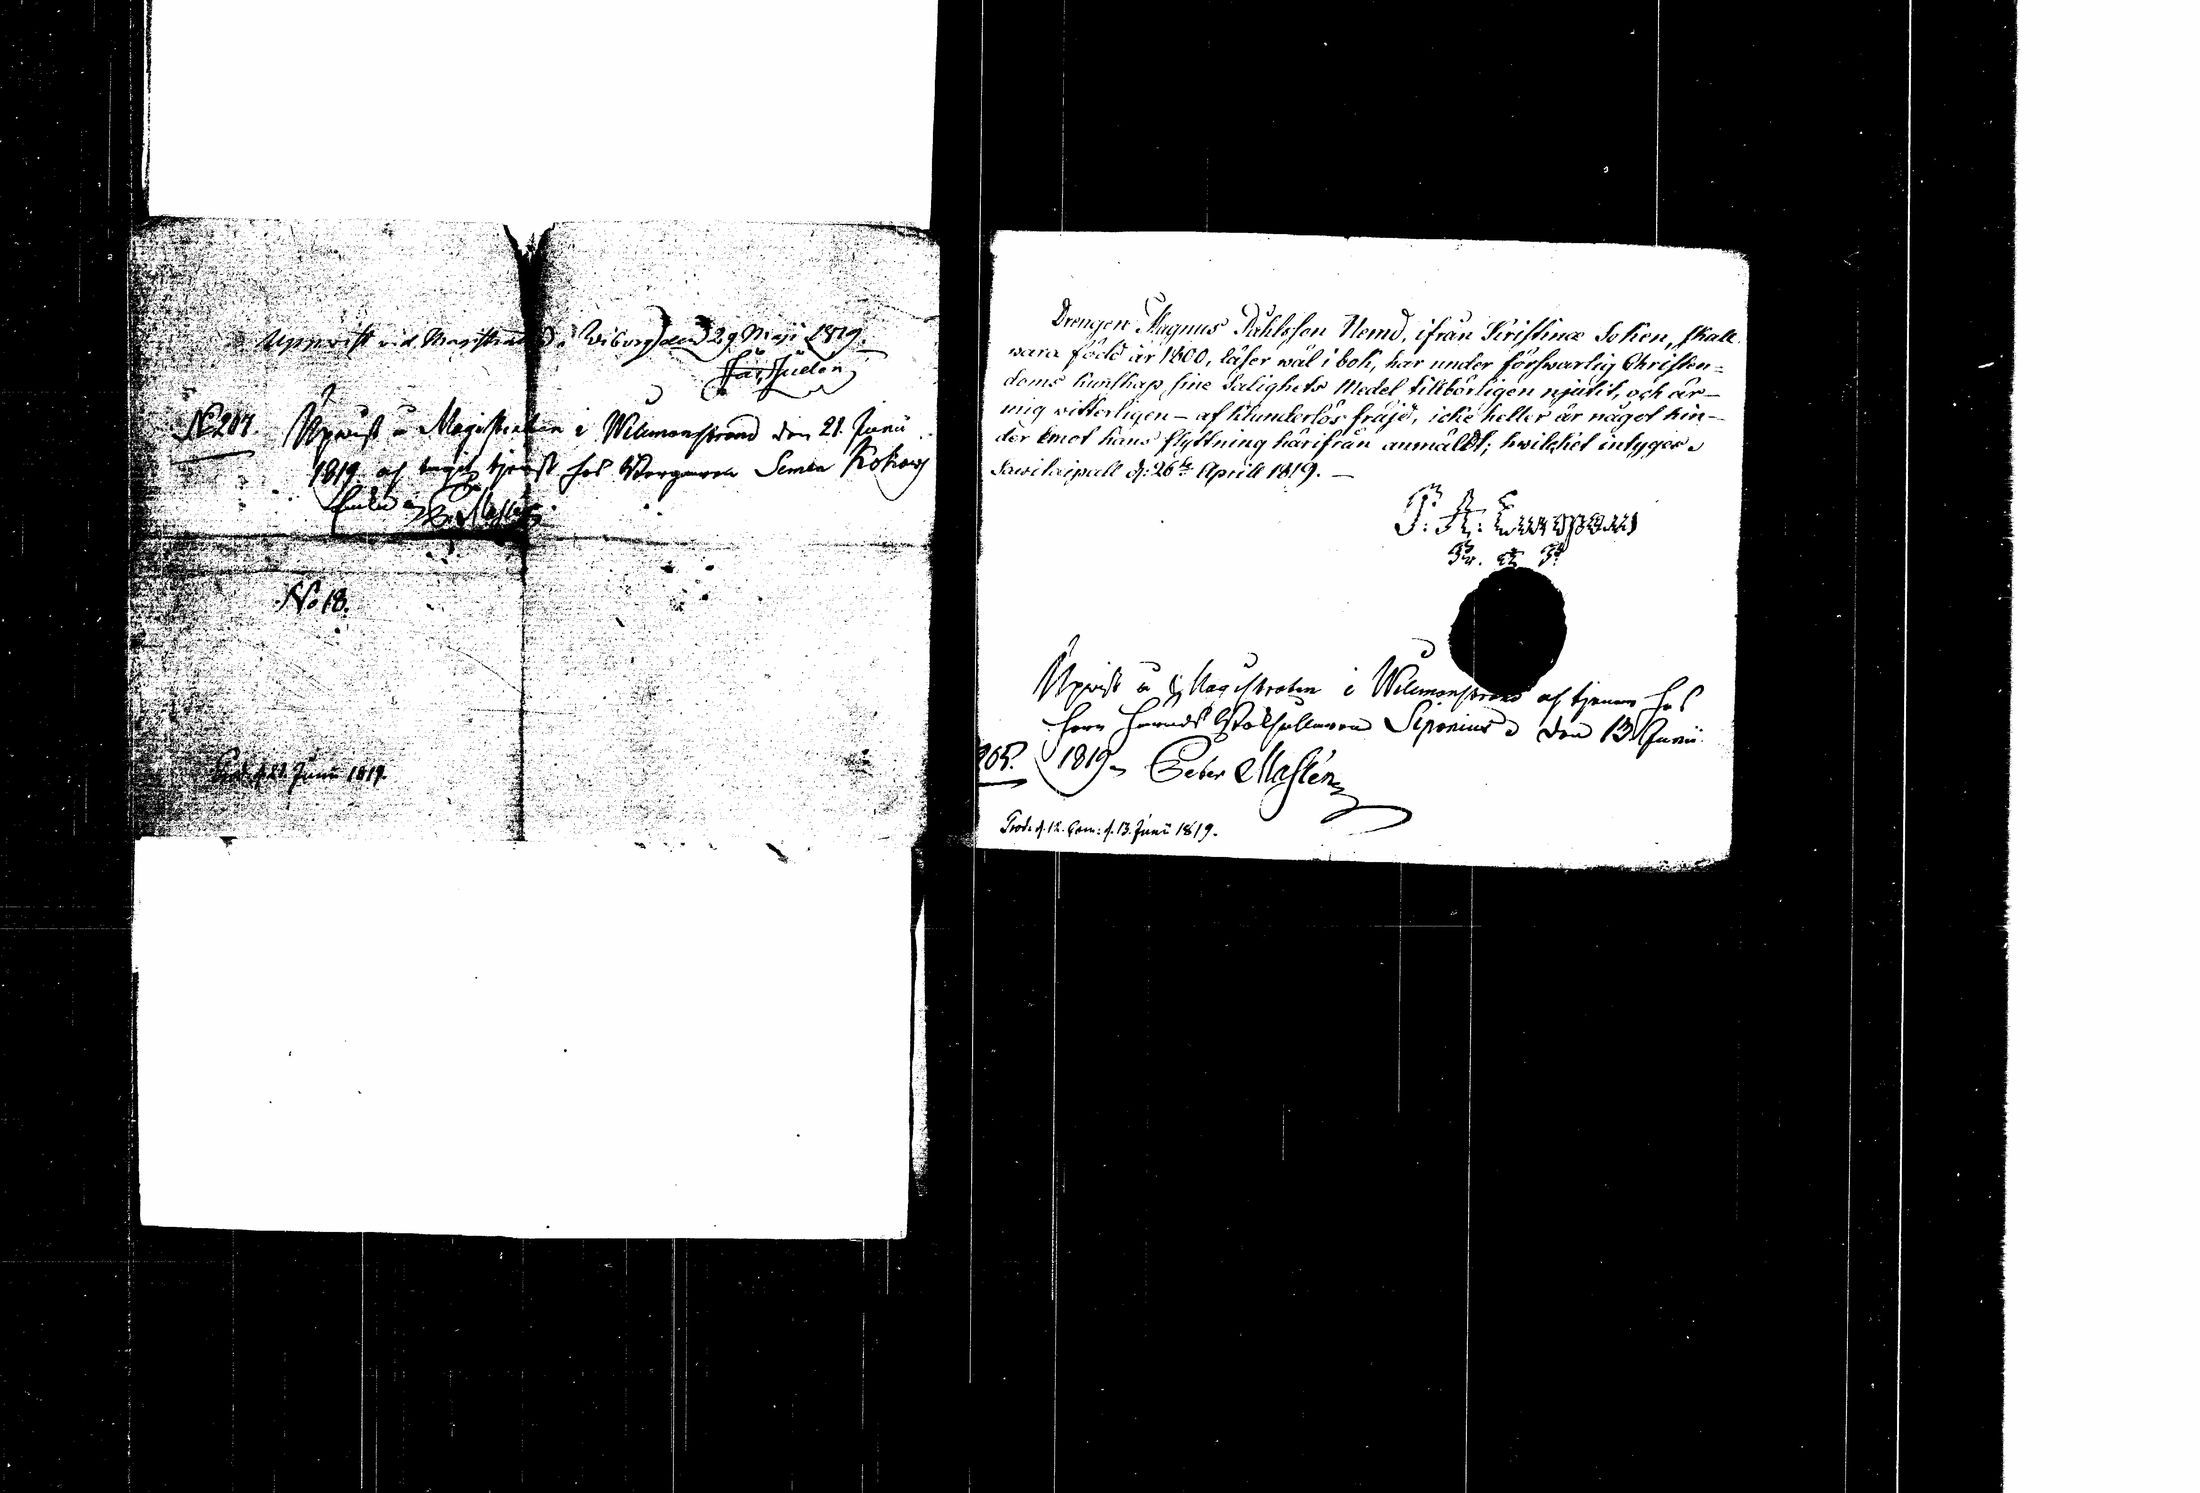 Uppwist vid Magistraten i Wiborg den 29 Maji 1819.
No 207. Upwist i Magistraten i Willmanstrand den 21. Junii
1819. af tagit tjenst hos Borgaren Semen Kokow
No 18.
Prod. d. 21 Junii 1819.
Drengen Magnus Påhlsson Hemd, ifrån Kristinæ Soken, skall
vara född år 1800, läser wäl i bok, har under förswarlig Christen-
doms kunskap sine Salighets Medel tillbörligen njutit, och är –
mig witterligen – af klanderlös fräjd, icke heller är något hin-
der emot hans flyttning härifrån anmäldt; hwilket intygas
Sawitaipall d: 26te Aprill 1819. –
P. A. Europæus
Upwist i Magistraten i Willmanstrand af tjenar hos
Herr Härads Probsten Siponius den 13 Junii
205. 1819 Peter Maslén
Prod. d. 12. Com: d. 13. Junii 1819.